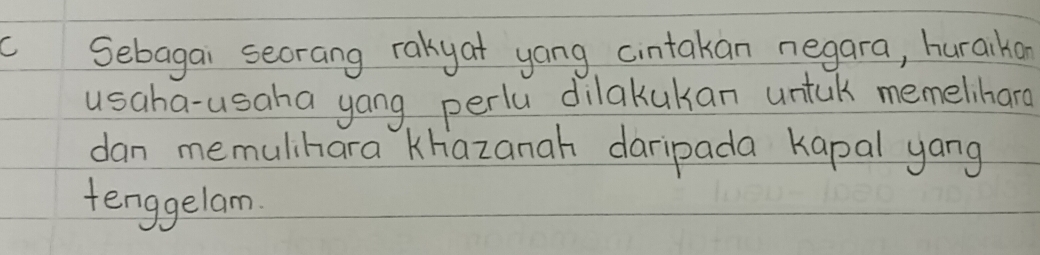 c Sebagai seorang rakyat yang cintakan negara, huraikan
usaha-usaha yang perlu dilakukan untuk memelihara
dan memulihara khazanah daripada kapal yang
tenggelam.